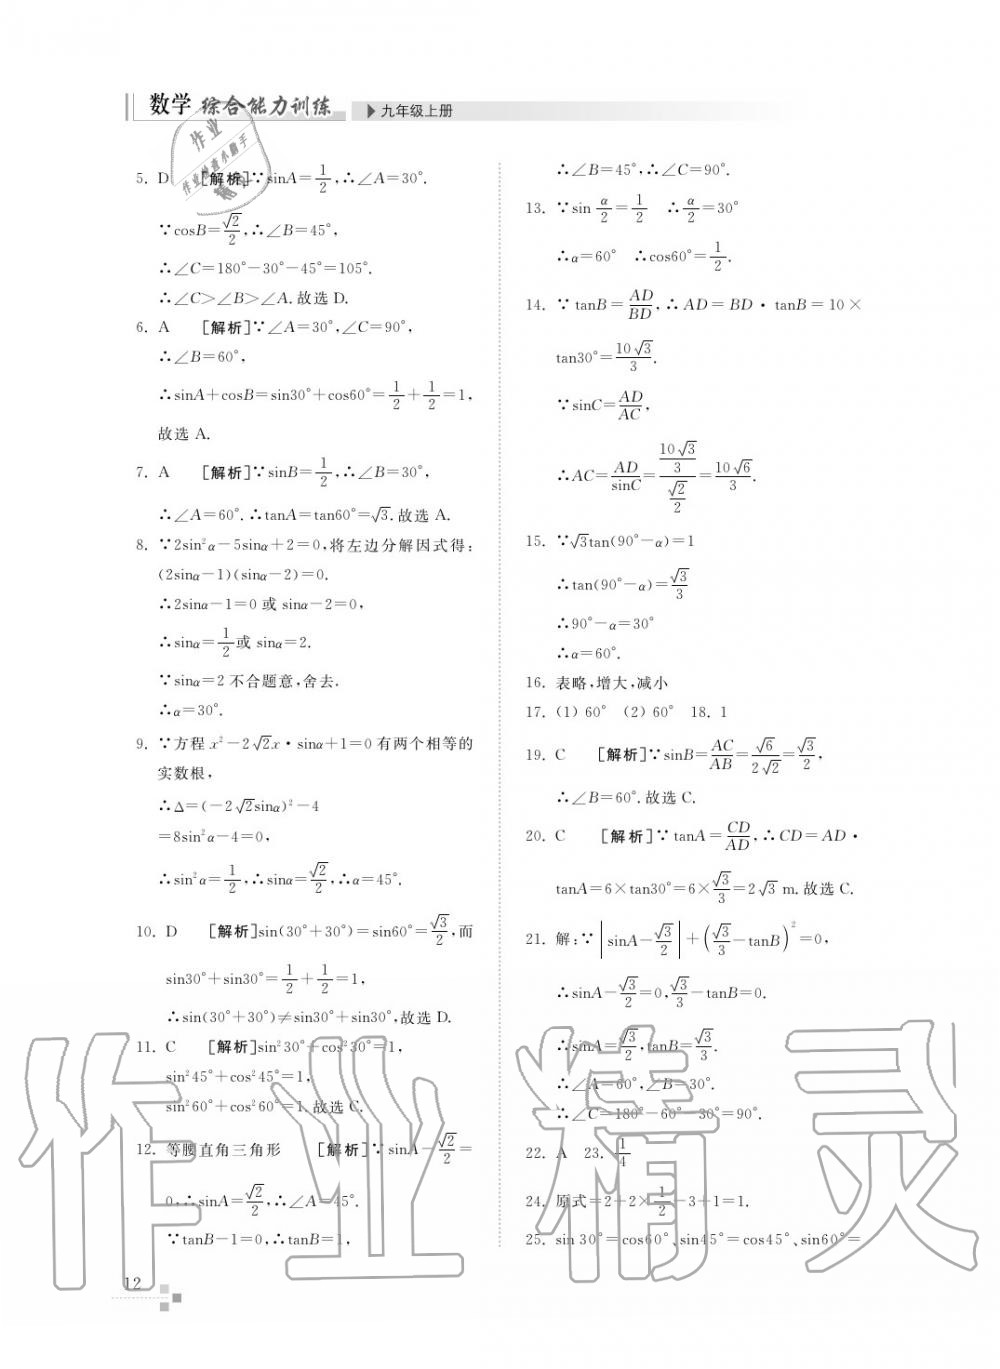 数学 综合能力训练
九年级上册
5. D [解析]∵sinA=1/2,∴∠A=30°.
∵cosB=√2/2,∴∠B=45°,
∴∠C=180°-30°-45°=105°.
∴∠C>∠B>∠A.故选 D.
6. A [解析]∵∠A=30°,∠C=90°,
∴∠B=60°,
∴sinA+cosB=sin30°+cos60°=1/2+1/2=1,
故选 A.
7. A [解析]∵sinB=1/2,∴∠B=30°,
∴∠A=60°.∴tanA=tan60°=√3.故选 A.
8. ∵2sin²α-5sinα+2=0,将左边分解因式得:
(2sinα-1)(sinα-2)=0.
∴2sinα-1=0 或 sinα-2=0,
∴sinα=1/2或 sinα=2.
∵sinα=2 不合题意,舍去.
∴α=30°.
9. ∵方程 x²-2√2x·sinα+1=0 有两个相等的
实数根,
∴Δ=(-2√2sinα)²-4
=8sin²α-4=0,
∴sin²α=1/2,∴sinα=√2/2,∴α=45°.
10. D [解析]sin(30°+30°)=sin60°=√3/2,而
sin30°+sin30°=1/2+1/2=1,
∴sin(30°+30°)≠sin30°+sin30°,故选 D.
11. C [解析]sin²30°+cos²30°=1,
sin²45°+cos²45°=1,
sin²60°+cos²60°=1.故选 C.
12. 等腰直角三角形 [解析]∵sinA-√2/2=
0,∴sinA=√2/2,∴∠A=45°.
∵tanB-1=0,∴tanB=1,
12
∴∠B=45°,∴∠C=90°.
13. ∵sin α/2=1/2 ∴α/2=30°
∴α=60° ∴cos60°=1/2.
14. ∵tanB=AD/BD,∴AD=BD·tanB=10×
tan30°=10√3/3.
∵sinC=AD/AC,
∴AC=AD/sinC=(10√3/3)/(√2/2)=10√6/3.
15. ∵√3tan(90°-α)=1
∴tan(90°-α)=√3/3
∴90°-α=30°
∴α=60°.
16. 表略,增大,减小
17. (1) 60° (2) 60° 18. 1
19. C [解析]∵sinB=AC/AB=√6/2√2=√3/2,
∴∠B=60°.故选 C.
20. C [解析]∵tanA=CD/AD,∴CD=AD·
tanA=6×tan30°=6×√3/3=2√3 m.故选 C.
21. 解:∵|sinA-√3/2|+(√3/3-tanB)²=0,
∴sinA-√3/2=0,√3/3-tanB=0.
∴sinA=√3/2,tanB=√3/3.
∴∠A=60°,∠B=30°.
∴∠C=180°-60°-30°=90°.
22. A 23. 1/4
24. 原式=2+2×1/2-3+1=1.
25. sin30°=cos60°、sin45°=cos45°、sin60°=
作业精灵
作业
作业检查小助手